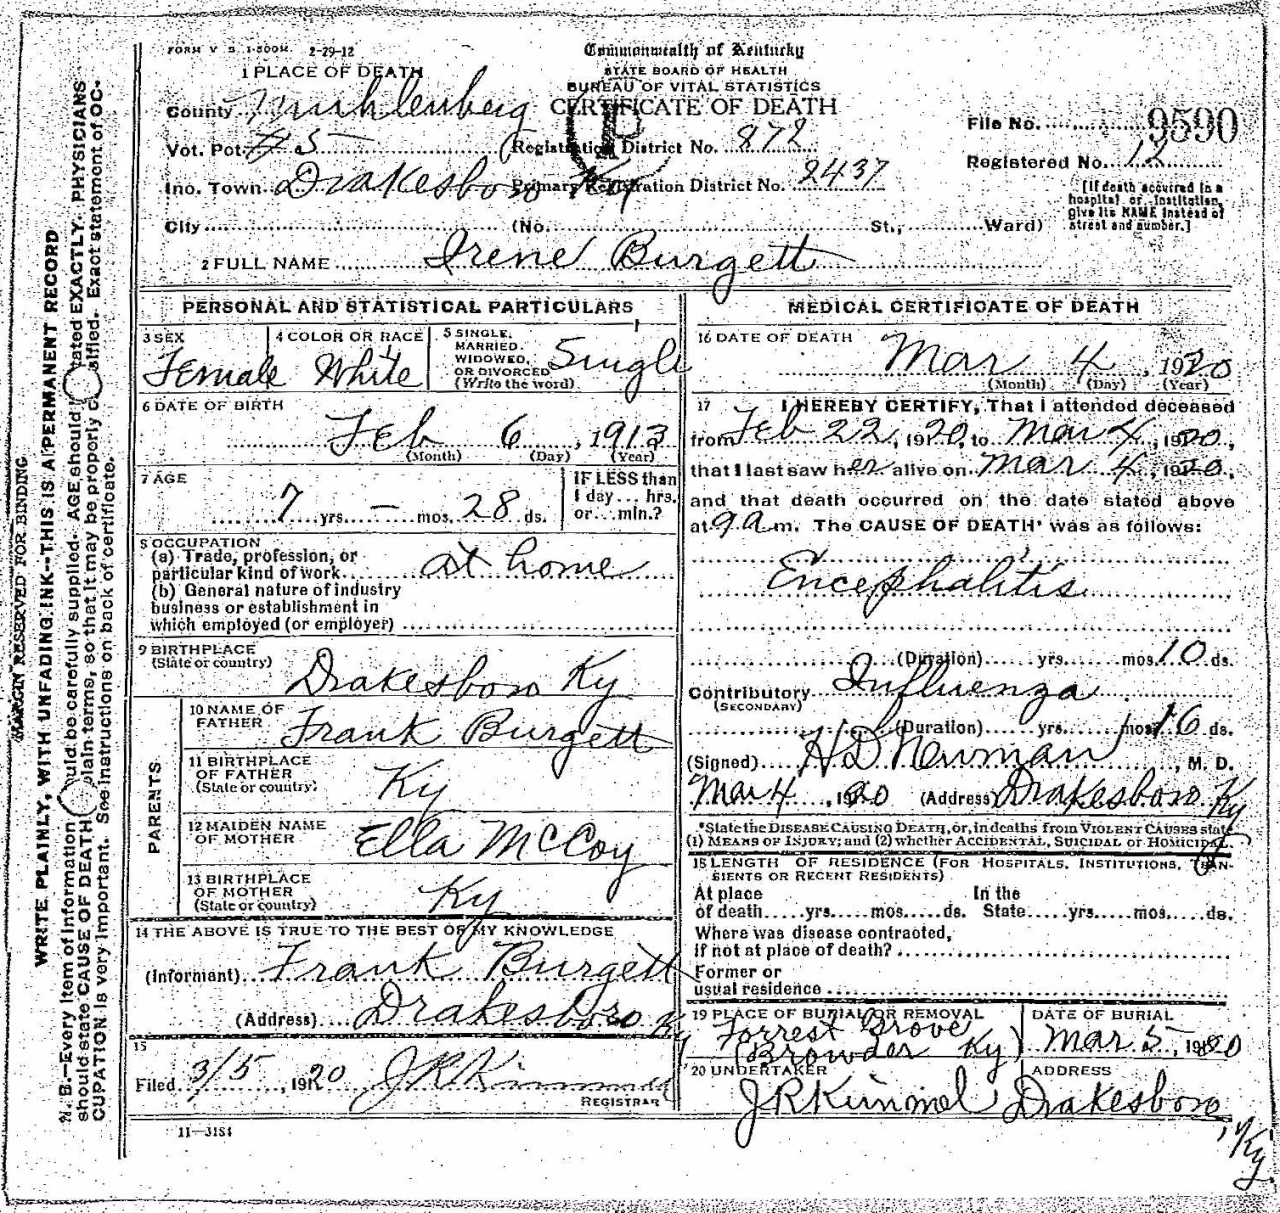 FORM V. S. 1-500M. 2-29-12
Commonwealth of Kentucky
STATE BOARD OF HEALTH
BUREAU OF VITAL STATISTICS
CERTIFICATE OF DEATH
1 PLACE OF DEATH
County Muhlenberg
Vot. Pct. #5
Inc. Town Drakesboro Ky
City
Registration District No. 872
Primary Registration District No. 2437
(No. St., Ward)
File No. 9590
Registered No. 12
[If death occurred in a
hospital or institution,
give its NAME instead of
street and number.]
2 FULL NAME Irene Burgett
PERSONAL AND STATISTICAL PARTICULARS
3 SEX
Female
4 COLOR OR RACE
White
5 SINGLE,
MARRIED,
WIDOWED,
OR DIVORCED
(Write the word)
Single
6 DATE OF BIRTH
Feb 6, 1913
(Month) (Day) (Year)
7 AGE
7 yrs. - mos. 28 ds.
IF LESS than
1 day... hrs.
or... min.?
8 OCCUPATION
(a) Trade, profession, or
particular kind of work at home
(b) General nature of industry
business or establishment in
which employed (or employer)
9 BIRTHPLACE
(State or country)
Drakesboro Ky
PARENTS
10 NAME OF
FATHER
Frank Burgett
11 BIRTHPLACE
OF FATHER
(State or country)
Ky
12 MAIDEN NAME
OF MOTHER
Ella McCoy
13 BIRTHPLACE
OF MOTHER
(State or country)
Ky
14 THE ABOVE IS TRUE TO THE BEST OF MY KNOWLEDGE
(Informant) Frank Burgett
(Address) Drakesboro Ky
15
Filed 3/5, 1920 J R Kimmel
REGISTRAR
11-3184
MEDICAL CERTIFICATE OF DEATH
16 DATE OF DEATH
Mar 4, 1920
(Month) (Day) (Year)
17 I HEREBY CERTIFY, That I attended deceased
from Feb 22, 1920, to Mar 4, 1920,
that I last saw her alive on Mar 4, 1920,
and that death occurred on the date stated above
at 9 a m. The CAUSE OF DEATH* was as follows:
Encephalitis
(Duration) yrs. mos. 10 ds.
Contributory Influenza
(SECONDARY)
(Duration) yrs. mos. 16 ds.
(Signed) H D Newman, M. D.
Mar 4, 1920 (Address) Drakesboro Ky
*State the DISEASE CAUSING DEATH, or, in deaths from VIOLENT CAUSES state
(1) MEANS OF INJURY; and (2) whether ACCIDENTAL, SUICIDAL or HOMICIDAL.
18 LENGTH OF RESIDENCE (FOR HOSPITALS, INSTITUTIONS, TRAN-
SIENTS OR RECENT RESIDENTS)
At place In the
of death yrs. mos. ds. State yrs. mos. ds.
Where was disease contracted,
if not at place of death?
Former or
usual residence
19 PLACE OF BURIAL OR REMOVAL
Forrest Grove
(Browder Ky)
DATE OF BURIAL
Mar 5, 1920
20 UNDERTAKER
J R Kimmel
ADDRESS
Drakesboro, Ky
MARGIN RESERVED FOR BINDING
WRITE PLAINLY, WITH UNFADING INK--THIS IS A PERMANENT RECORD
N. B.—Every item of information should be carefully supplied. AGE should be stated EXACTLY. PHYSICIANS
should state CAUSE OF DEATH in plain terms, so that it may be properly classified. Exact statement of OC-
CUPATION is very important. See instructions on back of certificate.